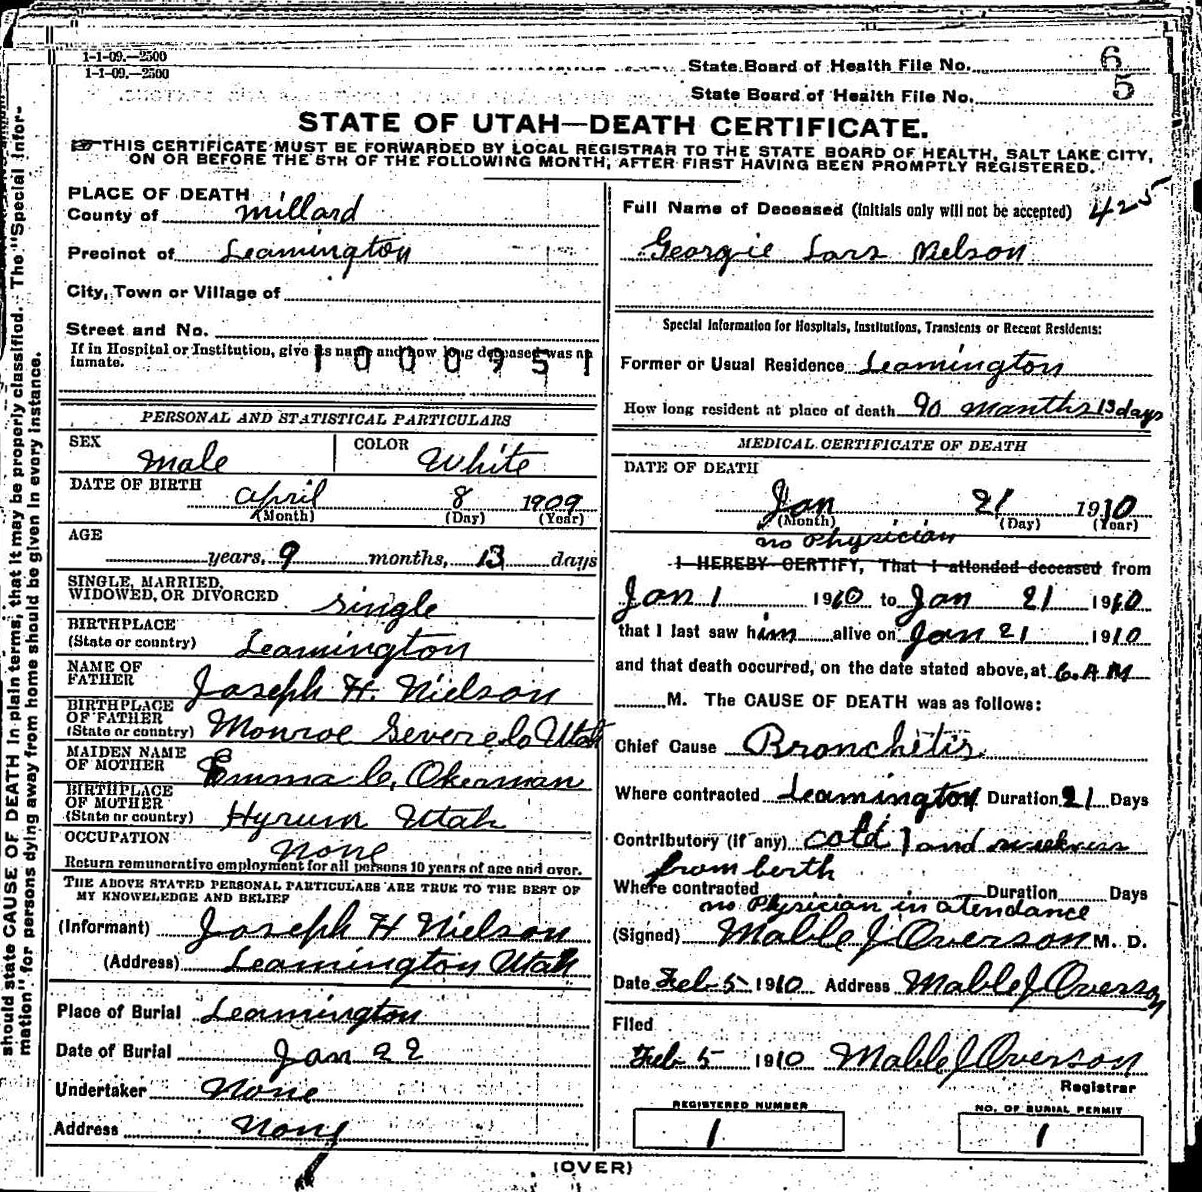 1-1-09.—2500
1-1-09.—2500
State Board of Health File No. 6
State Board of Health File No. 5
STATE OF UTAH—DEATH CERTIFICATE.
THIS CERTIFICATE MUST BE FORWARDED BY LOCAL REGISTRAR TO THE STATE BOARD OF HEALTH, SALT LAKE CITY,
ON OR BEFORE THE 5TH OF THE FOLLOWING MONTH, AFTER FIRST HAVING BEEN PROMPTLY REGISTERED.
should state CAUSE OF DEATH in plain terms, that it may be properly classified. The "Special Infor-
mation" for persons dying away from home should be given in every instance.
PLACE OF DEATH
County of Millard
Precinct of Leamington
City, Town or Village of
Street and No.
If in Hospital or Institution, give its name and how long deceased was an
inmate.
1000951
PERSONAL AND STATISTICAL PARTICULARS
SEX Male
COLOR White
DATE OF BIRTH April 8 1909
(Month) (Day) (Year)
AGE
years, 9 months, 13 days
SINGLE, MARRIED,
WIDOWED, OR DIVORCED single
BIRTHPLACE
(State or country) Leamington
NAME OF
FATHER Joseph H. Nielson
BIRTHPLACE
OF FATHER
(State or country) Monroe Severe Co Utah
MAIDEN NAME
OF MOTHER Emma C. Okerman
BIRTHPLACE
OF MOTHER
(State or country) Hyrum Utah
OCCUPATION none
Return remunerative employment for all persons 10 years of age and over.
THE ABOVE STATED PERSONAL PARTICULARS ARE TRUE TO THE BEST OF
MY KNOWLEDGE AND BELIEF
(Informant) Joseph H Nielson
(Address) Leamington Utah
Place of Burial Leamington
Date of Burial Jan 22
Undertaker None
Address None
Full Name of Deceased (Initials only will not be accepted) 425
Georgie Lars Nielson
Special Information for Hospitals, Institutions, Transients or Recent Residents:
Former or Usual Residence Leamington
How long resident at place of death 90 months 13 days
MEDICAL CERTIFICATE OF DEATH
DATE OF DEATH
Jan 21 1910
(Month) (Day) (Year)
no Physician
I HEREBY CERTIFY, That I attended deceased from
Jan 1 1910 to Jan 21 1910
that I last saw him alive on Jan 21 1910
and that death occurred, on the date stated above, at 6. A M
M. The CAUSE OF DEATH was as follows:
Chief Cause Bronchitis
Where contracted Leamington Duration 21 Days
Contributory (if any) cold and weekness
from berth
Where contracted Duration Days
no Physician in atendance
(Signed) Mable J Overson M. D.
Date Feb 5 1910 Address Mable J Overson
Filed
Feb 5 1910 Mable J Overson
Registrar
REGISTERED NUMBER
1
NO. OF BURIAL PERMIT
1
(OVER)